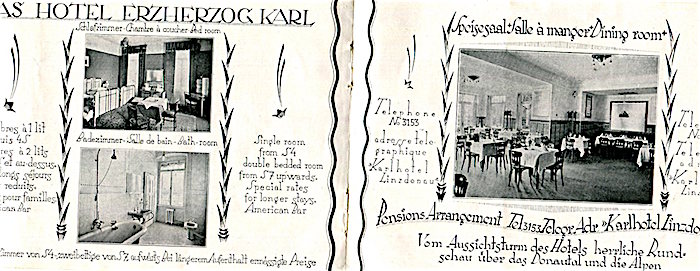 AS HOTEL ERZHERZOG KARL
Schlafzimmer-Chambre à coucher-Bed room
bres à 1 lit
uis 4S
res à 2 lits
et au-dessus.
longs séjours
reduits.
ican Bar
Badezimmer-Salle de bain-Bath-room
Single room
from S4
double bedded room
from S7 upwards.
Special rates
for longer stays.
American Bar
Zimmer von S4,-zweibettige von S7, aufwärts Bei längerem Aufenthalt ermässigte Preise
Speisesaal-Salle à manger-Dining room
Telephone
N° 3153
adresse téle
graphique
Karlhotel
Linzdonau
Tel
Te
adr
Kar
Li
Pensions-Arrangement Tel 3153 Telegr. Adr. "Karlhotel Linzdo
Vom Aussichtsturm des Hotels herrliche Rund-
schau über das Donautal und die Alpen